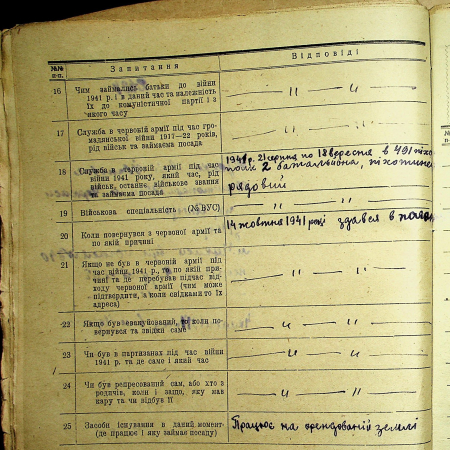 №№ п-п.
Запитання
Відповіді
16
Чим займались батьки до війни
1941 р. і в даний час та належність
їх до комуністичної партії і з
якого часу
— " — " —
17
Служба в червоній армії під час гро-
мадянської війни 1917—22 років,
рід військ та займаєма посада
— " — " —
18
Служба в червоній армії під час
війни 1941 року, який час, рід
військ, останнє військове звання
та займаєма посада
1941 р. 21 серпня по 18 вересня в 491 піхо
полк 2 батальйона, піхотинец
рядовий
19
Військова спеціальність (№ ВУС)
— " — " —
20
Коли повернувся з червоної армії та
по якій причині
14 жовтня 1941 році здався в полон
21
Якщо не був в червоній армії під
час війни 1941 р., то по якій при-
чині та де перебував підчас від-
ходу червоної армії (чим може
підтвердити, а коли свідками то їх
адреса)
— " — " —
22
Якщо був евакуйований, то коли по-
вернувся та звідки саме
— " — " —
23
Чи був в партизанах під час війни
1941 р. та де саме і який час
— " — " —
24
Чи був репресований сам, або хто з
родичів, коли і защо, яку мав
кару та чи відбув її
— " — " —
25
Засоби існування в даний момент
(де працює і яку займає посаду)
Працює на орендованій землі